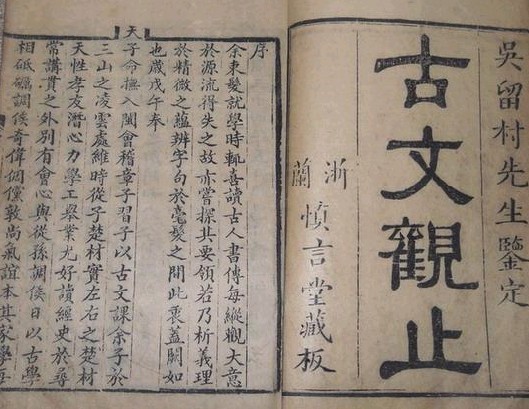 吳留村先生鑒定
古文觀止
浙蘭
慎言堂藏板
天
序
余束髮就學時輒喜讀古人書傳每縱觀大意
於源流得失之故亦嘗探其要領若乃析義理
於精微之蘊辨字句於毫髮之間此衷蓋闕如
也歲戊午奉
天子命撫八閩會稽章子習子以古文課余子於
三山之凌雲處維時從子楚材實左右之楚材
天性孝友潛心力學工舉業尤好讀經史於尋
常講貫之外別有會心與從孫調侯日以古學
相砥礪調侯奇偉倜儻敦尚氣誼本其家學每